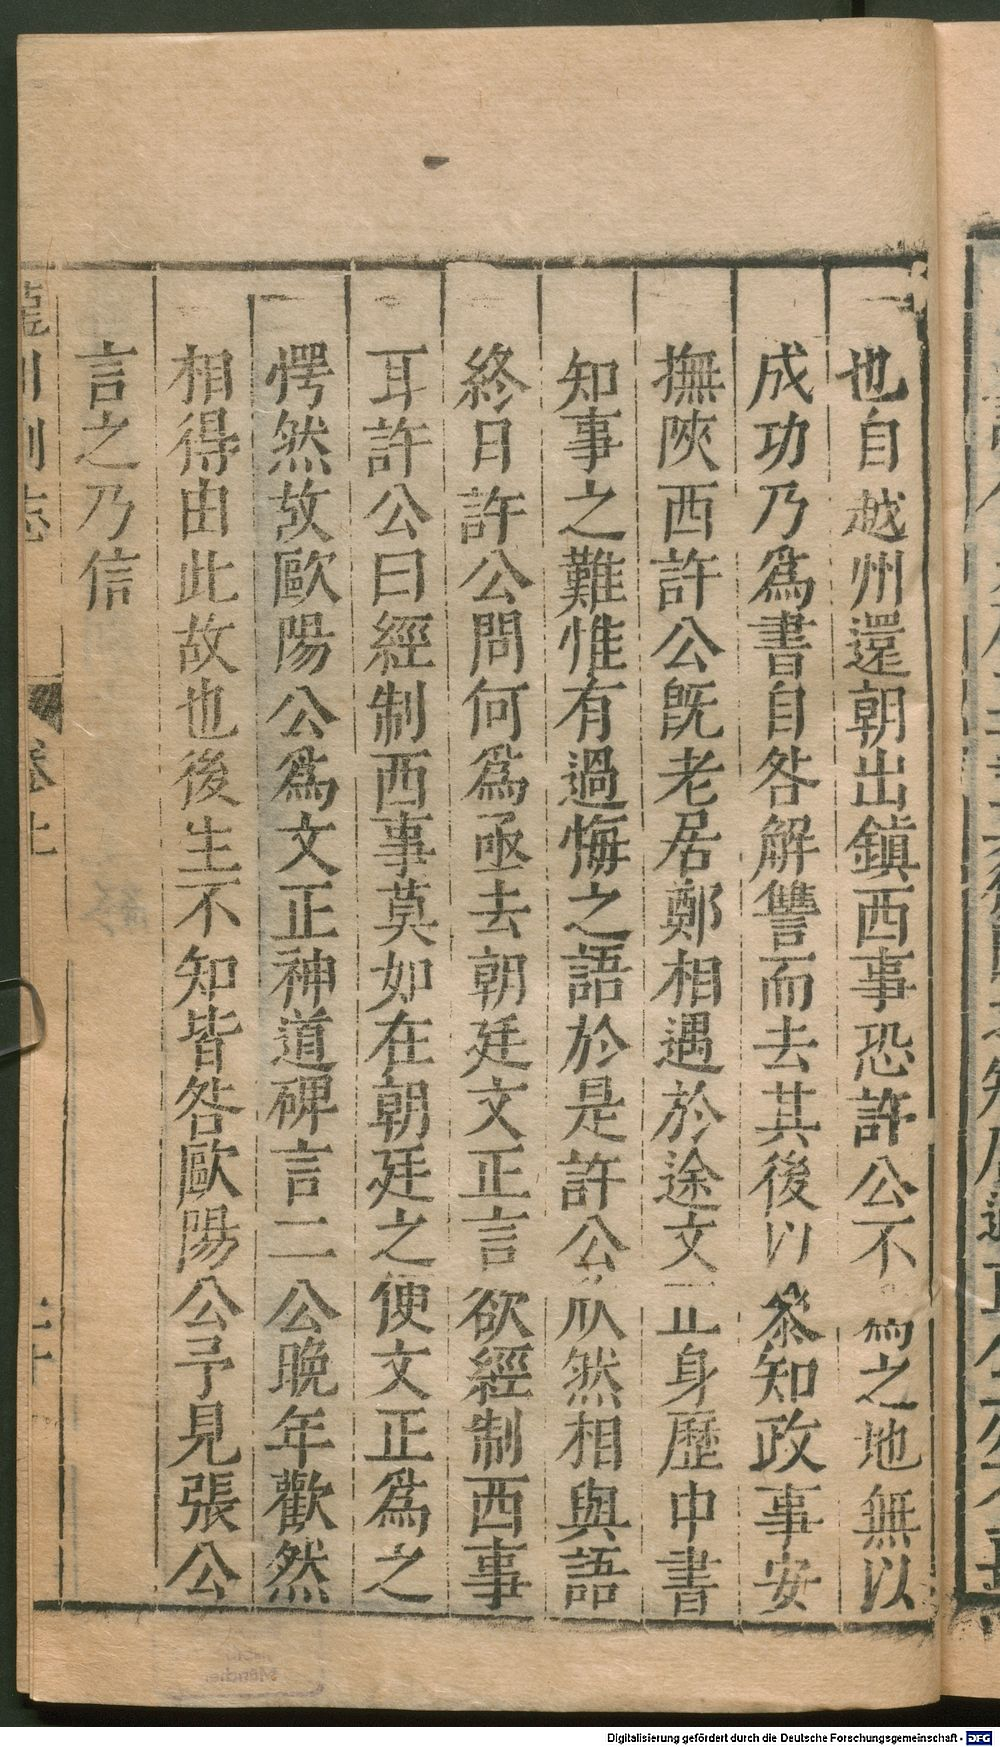 也自越州還朝出鎮西事恐許公不爲之地無以
成功乃爲書自咎解讐而去其後以叅知政事安
撫陝西許公旣老居鄭相遇於途文正身歷中書
知事之難惟有過悔之語於是許公欣然相與語
終日許公問何爲亟去朝廷文正言欲經制西事
耳許公曰經制西事莫如在朝廷之便文正爲之
愕然故歐陽公爲文正神道碑言二公晚年歡然
相得由此故也後生不知皆咎歐陽公予見張公
言之乃信
龍川別志
卷上
Digitalisierung gefördert durch die Deutsche Forschungsgemeinschaft - DFG